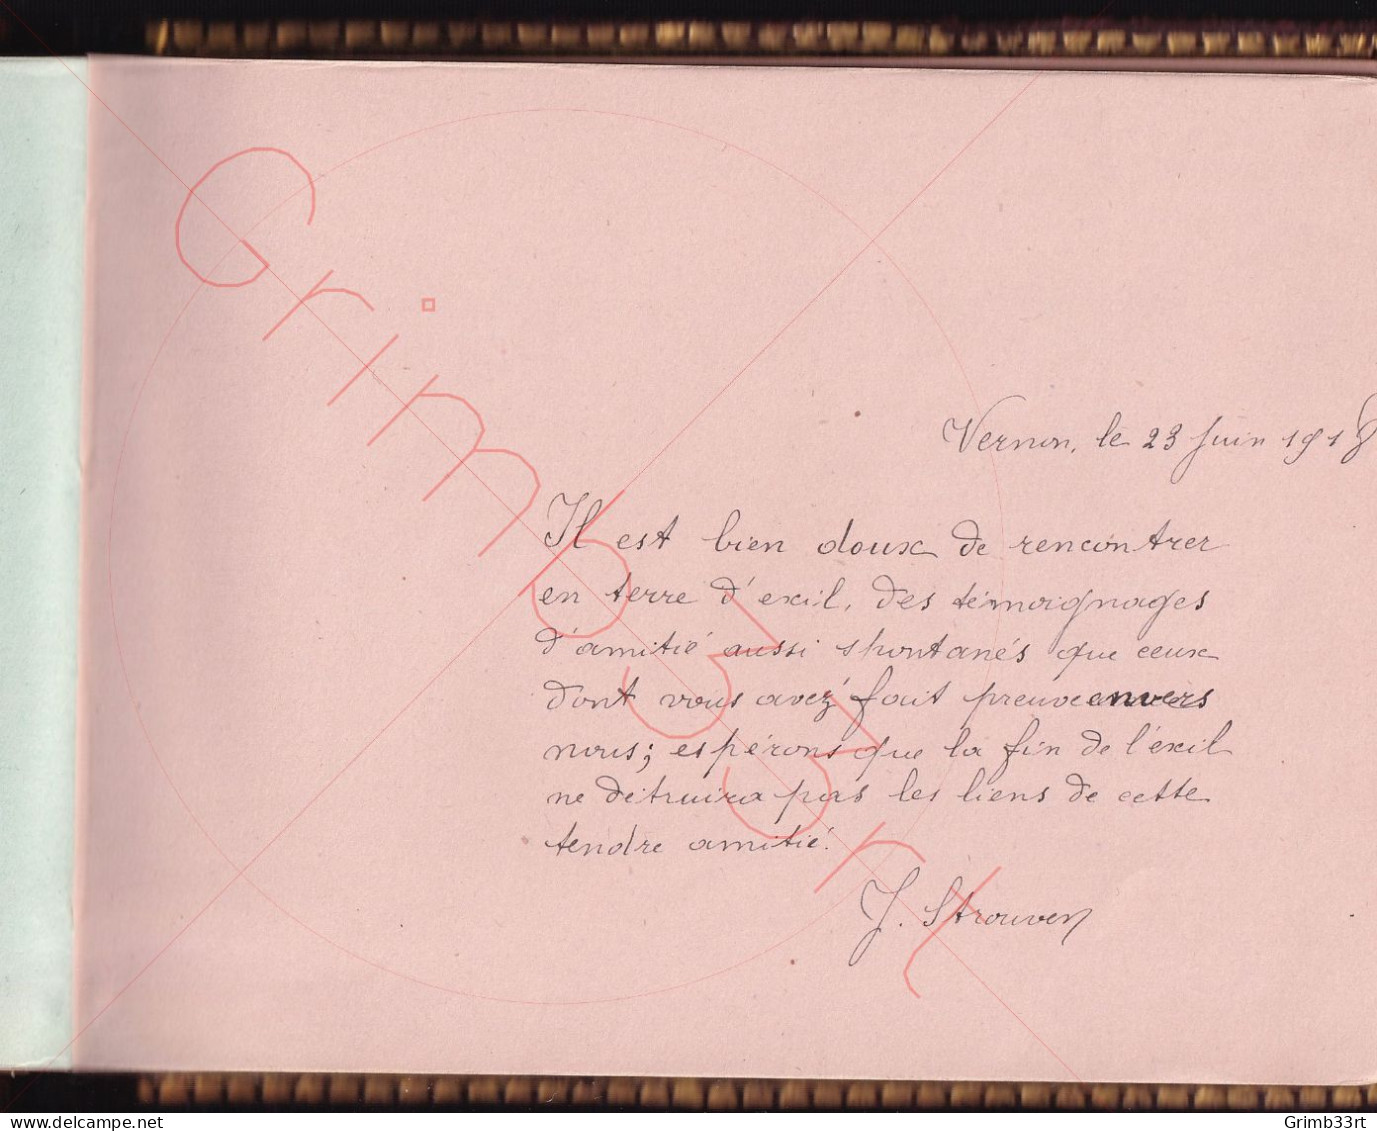 Vernon, le 23 Juin 1918
Il est bien doux de rencontrer
en terre d'exil, des témoignages
d'amitié aussi spontanés que ceux
dont vous avez fait preuve envers
nous; espérons que la fin de l'exil
ne détruira pas les liens de cette
tendre amitié.
J. Strouven
Grimb33rt
www.delcampe.net
Grimb33rt